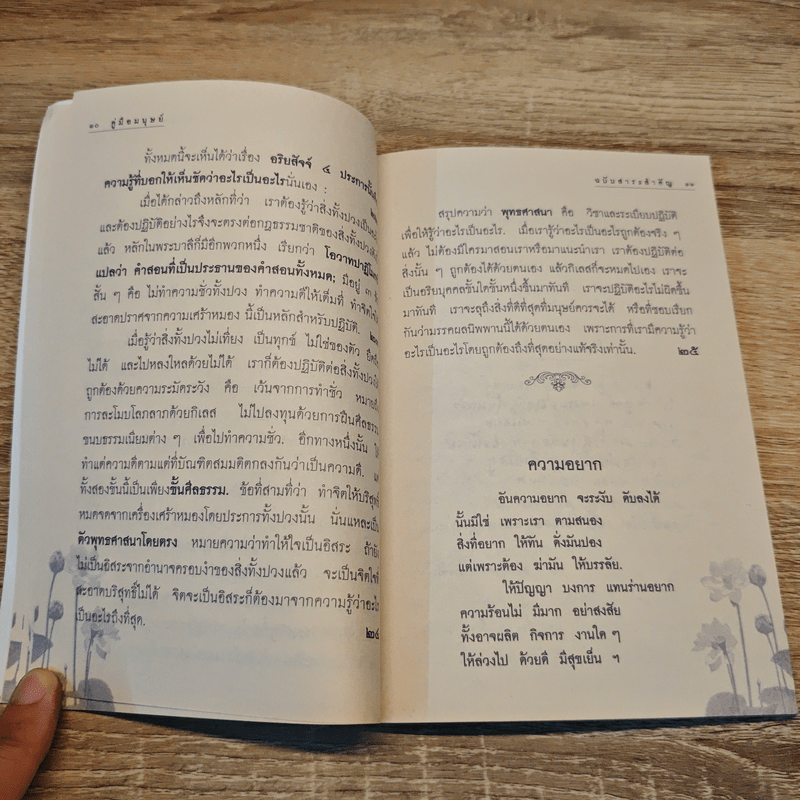 ๑๐ คู่มือมนุษย์
ทั้งหมดนี้จะเห็นได้ว่าเรื่อง อริยสัจจ์ ๔ ประการนั้น
ความรู้ที่บอกให้เห็นชัดว่าอะไรเป็นอะไรนั่นเอง :
เมื่อได้กล่าวถึงหลักที่ว่า เราต้องรู้ว่าสิ่งทั้งปวงเป็น
และต้องปฏิบัติอย่างไรจึงจะตรงต่อกฎธรรมชาติของสิ่งทั้งปวง
แล้ว หลักในพระบาลีก็มีอีกพวกหนึ่ง เรียกว่า
แปลว่า คำสอนที่เป็นประธานของคำสอนทั้งหมด; มีอยู่ ๓
สั้น ๆ คือ ไม่ทำความชั่วทั้งปวง ทำความดีให้เต็มที่ ทำจิตใจ
สะอาดปราศจากความเศร้าหมอง นี้เป็นหลักสำหรับปฏิบัติ.
เมื่อรู้ว่าสิ่งทั้งปวงไม่เที่ยง เป็นทุกข์ ไม่ใช่ของตัว
ไม่ได้ และไปหลงใหลด้วยไม่ได้ เราก็ต้องปฏิบัติต่อสิ่งทั้งปวง
ถูกต้องด้วยความระมัดระวัง คือ เว้นจากการทำชั่ว
การละโมบโลภลาภด้วยกิเลส ไม่ไปลงทุนด้วยการฝืนศีลธรรม
ขนบธรรมเนียมต่าง ๆ เพื่อไปทำความชั่ว. อีกทางหนึ่งนั้น
ทำแต่ความดีตามแต่ที่บัณฑิตสมมติตกลงกันว่าเป็นความดี.
ทั้งสองขั้นนี้เป็นเพียงขั้นศีลธรรม. ข้อที่สามที่ว่า ทำจิตให้บริสุทธิ์
หมดจดจากเครื่องเศร้าหมองโดยประการทั้งปวงนั้น นั่นแหละเป็น
ตัวพุทธศาสนาโดยตรง หมายความว่าทำให้ใจเป็นอิสระ
ไม่เป็นอิสระจากอำนาจครอบงำของสิ่งทั้งปวงแล้ว จะเป็นจิตใจที่
สะอาดบริสุทธิ์ไม่ได้ จิตจะเป็นอิสระก็ต้องมาจากความรู้ว่าอะไร
เป็นอะไรถึงที่สุด. ๒๔
ฉบับสาระสำคัญ ๑๑
สรุปความว่า พุทธศาสนา คือ วิชาและระเบียบปฏิบัติ
เพื่อให้รู้ว่าอะไรเป็นอะไร. เมื่อเรารู้ว่าอะไรเป็นอะไรถูกต้องจริง ๆ
แล้ว ไม่ต้องมีใครมาสอนเราหรือมาแนะนำเรา เราต้องปฏิบัติต่อ
สิ่งนั้น ๆ ถูกต้องได้ด้วยตนเอง แล้วกิเลสก็จะหมดไปเอง เราจะ
เป็นอริยบุคคลชั้นใดชั้นหนึ่งขึ้นมาทันที เราจะปฏิบัติอะไรไม่ผิดขึ้น
มาทันที เราจะลุถึงสิ่งที่ดีที่สุดที่มนุษย์ควรจะได้ หรือที่ชอบเรียก
กันว่ามรรคผลนิพพานนี้ได้ด้วยตนเอง เพราะการที่เรามีความรู้ว่า
อะไรเป็นอะไรโดยถูกต้องถึงที่สุดอย่างแท้จริงเท่านั้น. ๒๕
ความอยาก
อันความอยาก จะระงับ ดับลงได้
นั้นมิใช่ เพราะเรา ตามสนอง
สิ่งที่อยาก ให้ทัน ดั่งมันปอง
แต่เพราะต้อง ฆ่ามัน ให้บรรลัย.
ให้ปัญญา บงการ แทนร่านอยาก
ความร้อนไม่ มีมาก อย่าสงสัย
ทั้งอาจผลิต กิจการ งานใด ๆ
ให้ล่วงไป ด้วยดี มีสุขเย็น ฯ